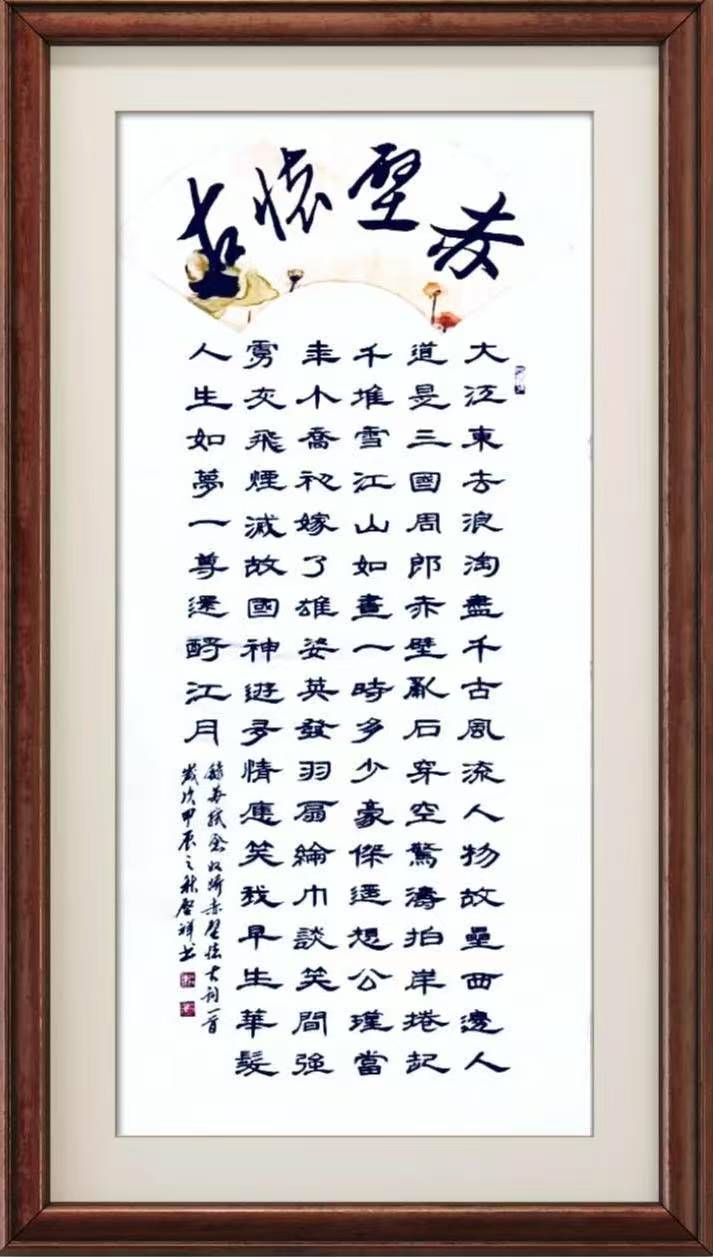 赤壁懷古
大江東去浪淘盡千古風流人物故壘西邊人
道是三國周郎赤壁亂石穿空驚濤拍岸捲起
千堆雪江山如畫一時多少豪傑遥想公瑾當
年小喬初嫁了雄姿英發羽扇綸巾談笑間強
虜灰飛煙滅故國神遊多情應笑我早生華髮
人生如夢一尊還酹江月
錄蘇軾念奴嬌赤壁懷古詞一首
歲次甲辰之秋啓祥書